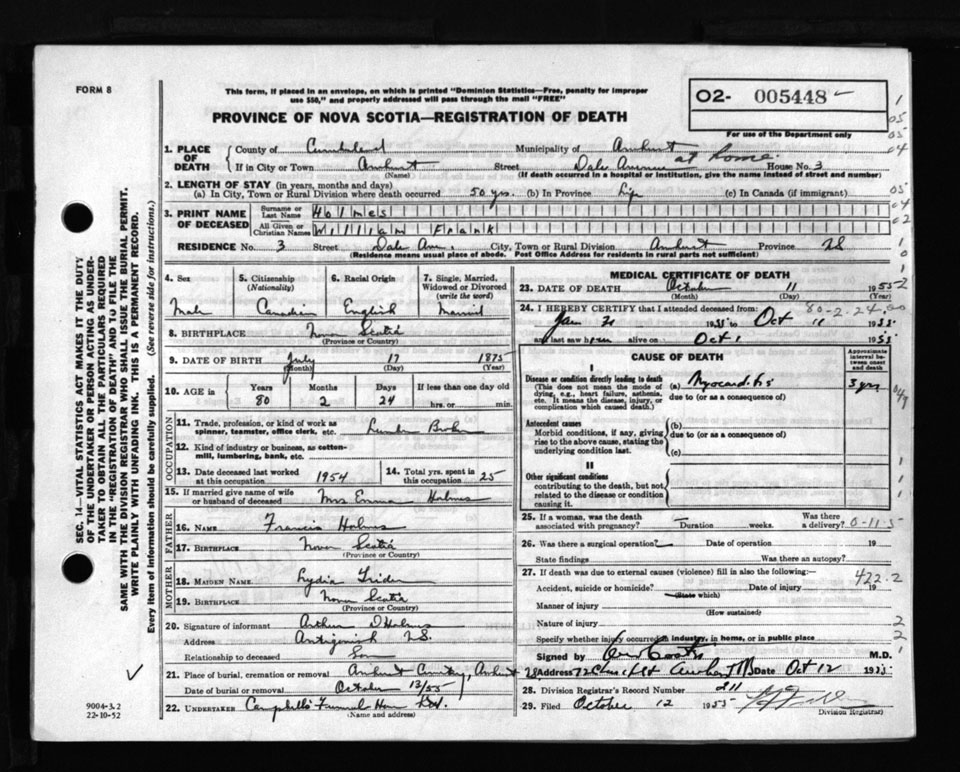 FORM 8
This form, if placed in an envelope, on which is printed "Dominion Statistics—Free, penalty for improper
use $50," and properly addressed will pass through the mail "FREE"
O2- 005448
PROVINCE OF NOVA SCOTIA—REGISTRATION OF DEATH
For use of the Department only
1. PLACE OF DEATH
County of Cumberland Municipality of Amherst
at home
If in City or Town Amherst Street Dale Avenue House No. 3
(Name) (If death occurred in a hospital or institution, give the name instead of street and number)
2. LENGTH OF STAY (in years, months and days)
(a) In City, Town or Rural Division where death occurred 50 yrs. (b) In Province Life (c) In Canada (if immigrant)
3. PRINT NAME OF DECEASED
Surname or Last Name Holmes
All Given or Christian Names William Frank
RESIDENCE No. 3 Street Dale Ave. City, Town or Rural Division Amherst Province NS
(Residence means usual place of abode. Post Office Address for residents in rural parts not sufficient)
4. Sex
Male
5. Citizenship
(Nationality)
Canadian
6. Racial Origin
English
7. Single, Married,
Widowed or Divorced
(write the word)
Married
8. BIRTHPLACE Nova Scotia
(Province or Country)
9. DATE OF BIRTH July 17 1875
(Month) (Day) (Year)
10. AGE is
Years Months Days If less than one day old
80 2 24 hrs. or min.
OCCUPATION
11. Trade, profession, or kind of work as
spinner, teamster, office clerk, etc. Lumber
12. Kind of industry or business, as cotton-
mill, lumbering, bank, etc.
13. Date deceased last worked
at this occupation 1954
14. Total yrs. spent in
this occupation 25
15. If married give name of wife
or husband of deceased Mrs Emma Holmes
FATHER
16. NAME Francis Holmes
17. BIRTHPLACE Nova Scotia
(Province or Country)
MOTHER
18. MAIDEN NAME. Lydia
19. BIRTHPLACE Nova Scotia
(Province or Country)
20. Signature of informant Arthur D Holmes
Address Antigonish N.S.
Relationship to deceased Son
21. Place of burial, cremation or removal Amherst Cemetery, Amherst
Date of burial or removal October 13/55
22. UNDERTAKER Campbell's Funeral Home Ltd.
(Name and address)
MEDICAL CERTIFICATE OF DEATH
23. DATE OF DEATH October 11 1955
(Month) (Day) (Year)
24. I HEREBY CERTIFY that I attended deceased from:
80-2-24
Jan 1955 to Oct 11 1955
and last saw him alive on Oct 1 1955
CAUSE OF DEATH
Approximate
interval be-
tween onset
and death
I
Disease or condition directly leading to death
(This does not mean the mode of
dying, e.g., heart failure, asthenia,
etc. It means the disease, injury, or
complication which caused death.)
(a) Myocarditis 3 yrs
due to (or as a consequence of)
Antecedent causes
Morbid conditions, if any, giving
rise to the above cause, stating the
underlying condition last.
(b)
due to (or as a consequence of)
(c)
II
Other significant conditions
contributing to the death, but not
related to the disease or condition
causing it.
25. If a woman, was the death
associated with pregnancy? Duration weeks. Was there
a delivery?
0-11-5
26. Was there a surgical operation? Date of operation 19
State findings Was there an autopsy?
27. If death was due to external causes (violence) fill in also the following:—
422.2
Accident, suicide or homicide? Date of injury 19
(State which)
Manner of injury
(How sustained)
Nature of injury
Specify whether injury occurred in industry, in home, or in public place
Signed by M.D.
Address 72 Church St Amherst NS Date Oct 12 1955
28. Division Registrar's Record Number 211
29. Filed October 12 1955
Division Registrar)
SEC. 14—VITAL STATISTICS ACT MAKES IT THE DUTY
OF THE UNDERTAKER OR PERSON ACTING AS UNDER-
TAKER TO OBTAIN ALL THE PARTICULARS REQUIRED
IN THE "REGISTRATION OF DEATH" AND TO FILE THE
SAME WITH THE DIVISION REGISTRAR WHO SHALL ISSUE THE BURIAL PERMIT.
WRITE PLAINLY WITH UNFADING INK. THIS IS A PERMANENT RECORD.
Every item of information should be carefully supplied. (See reverse side for instructions.)
9004-3.2
22-10-52